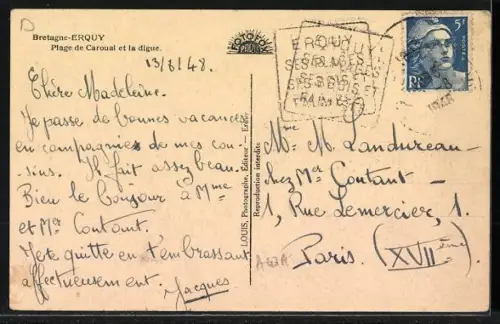 D
Bretagne-ERQUY
Plage de Caroual et la digue.
13/8/48.
Chère Madeleine.
Je passe de bonnes vacances
en compagnies de mes cou-
sins. Il fait assez beau.
Bien le bonjour à Mme
et Mr Coutant.
Je te quitte en t'embrassant
affectueusement.
Jacques
LOUIS, Photographe, Editeur -
Reproduction interdite
ERQUY
SES PLAGES
SES BOIS ET
5F
RF
POSTES
1948
Mme M. Landureau-
chez Mr Coutant -
1, Rue Lemercier, 1.
Paris. (XVIIème)